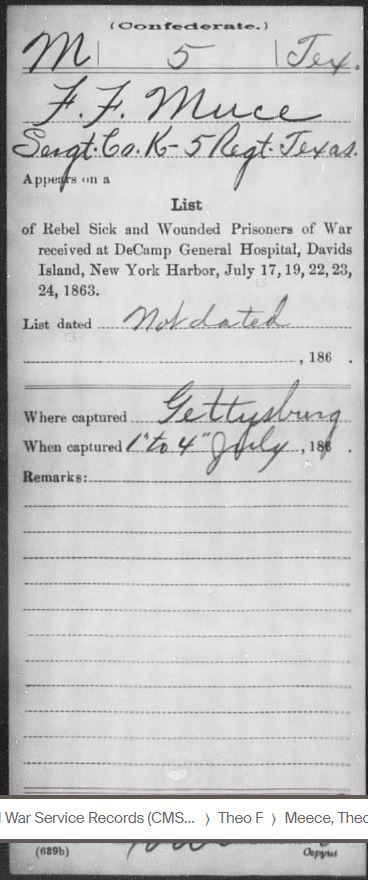 (Confederate.)
M | 5 | Tex.
F. F. Muce
Sergt. Co. K- 5 Regt. Texas.
Appears on a
List
of Rebel Sick and Wounded Prisoners of War
received at DeCamp General Hospital, Davids
Island, New York Harbor, July 17, 19, 22, 23,
24, 1863.
List dated Not dated
, 186 .
Where captured Gettysburg
When captured 1" to 4" July , 186 .
Remarks:
War Service Records (CMS... 〉 Theo F 〉 Meece, Theo
(689b) Copyist